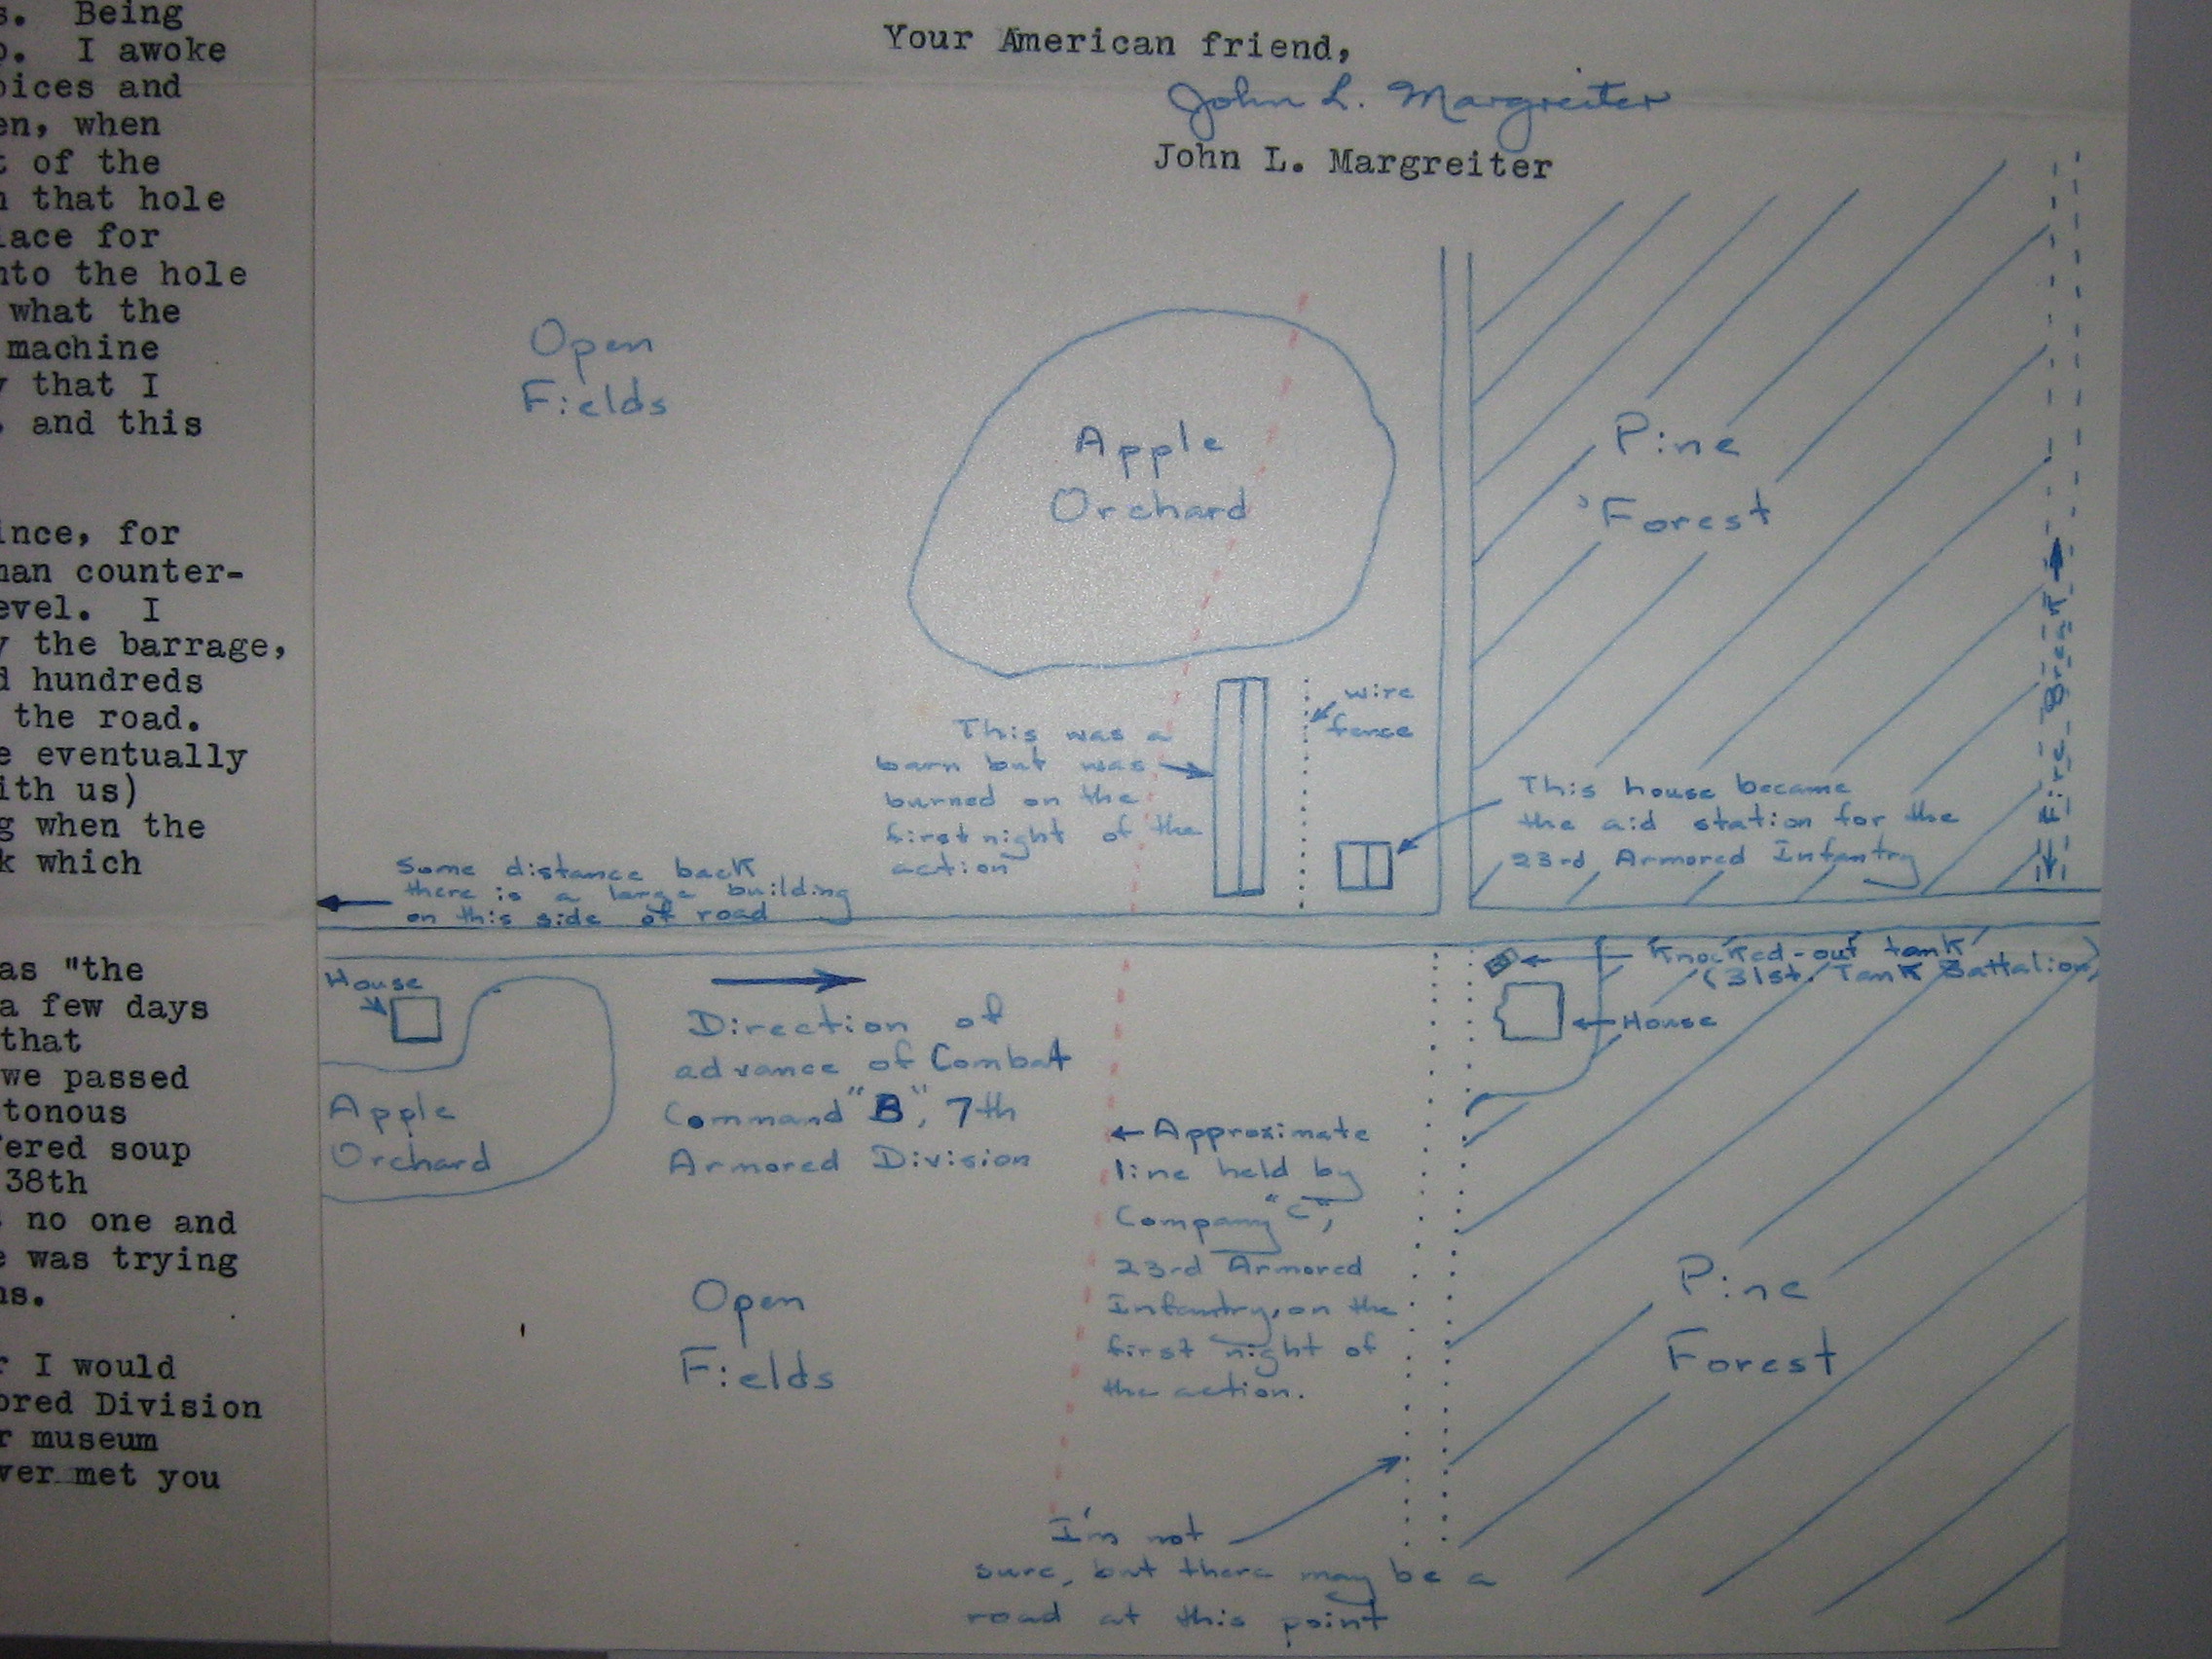 s. Being
o. I awoke
oices and
en, when
t of the
n that hole
lace for
nto the hole
what the
machine
y that I
, and this
ince, for
man counter-
evel. I
y the barrage,
d hundreds
the road.
e eventually
ith us)
g when the
k which
as "the
a few days
that
we passed
tonous
fered soup
38th
no one and
e was trying
ns.
r I would
ored Division
r museum
ver met you
Your American friend,
John L. Margreiter
John L. Margreiter
Open
Fields
Apple
Orchard
Pine
Forest
Fire Break
wire
fence
This was a
barn but was
burned on the
first night of the
action
This house became
the aid station for the
23rd Armored Infantry
Some distance back
there is a large building
on this side of road
House
Apple
Orchard
Direction of
advance of Combat
Command "B", 7th
Armored Division
Knocked-out tank
(31st. Tank Battalion)
House
Approximate
line held by
Company "C",
23rd Armored
Infantry, on the
first night of
the action.
Open
Fields
Pine
Forest
I'm not
sure, but there may be a
road at this point